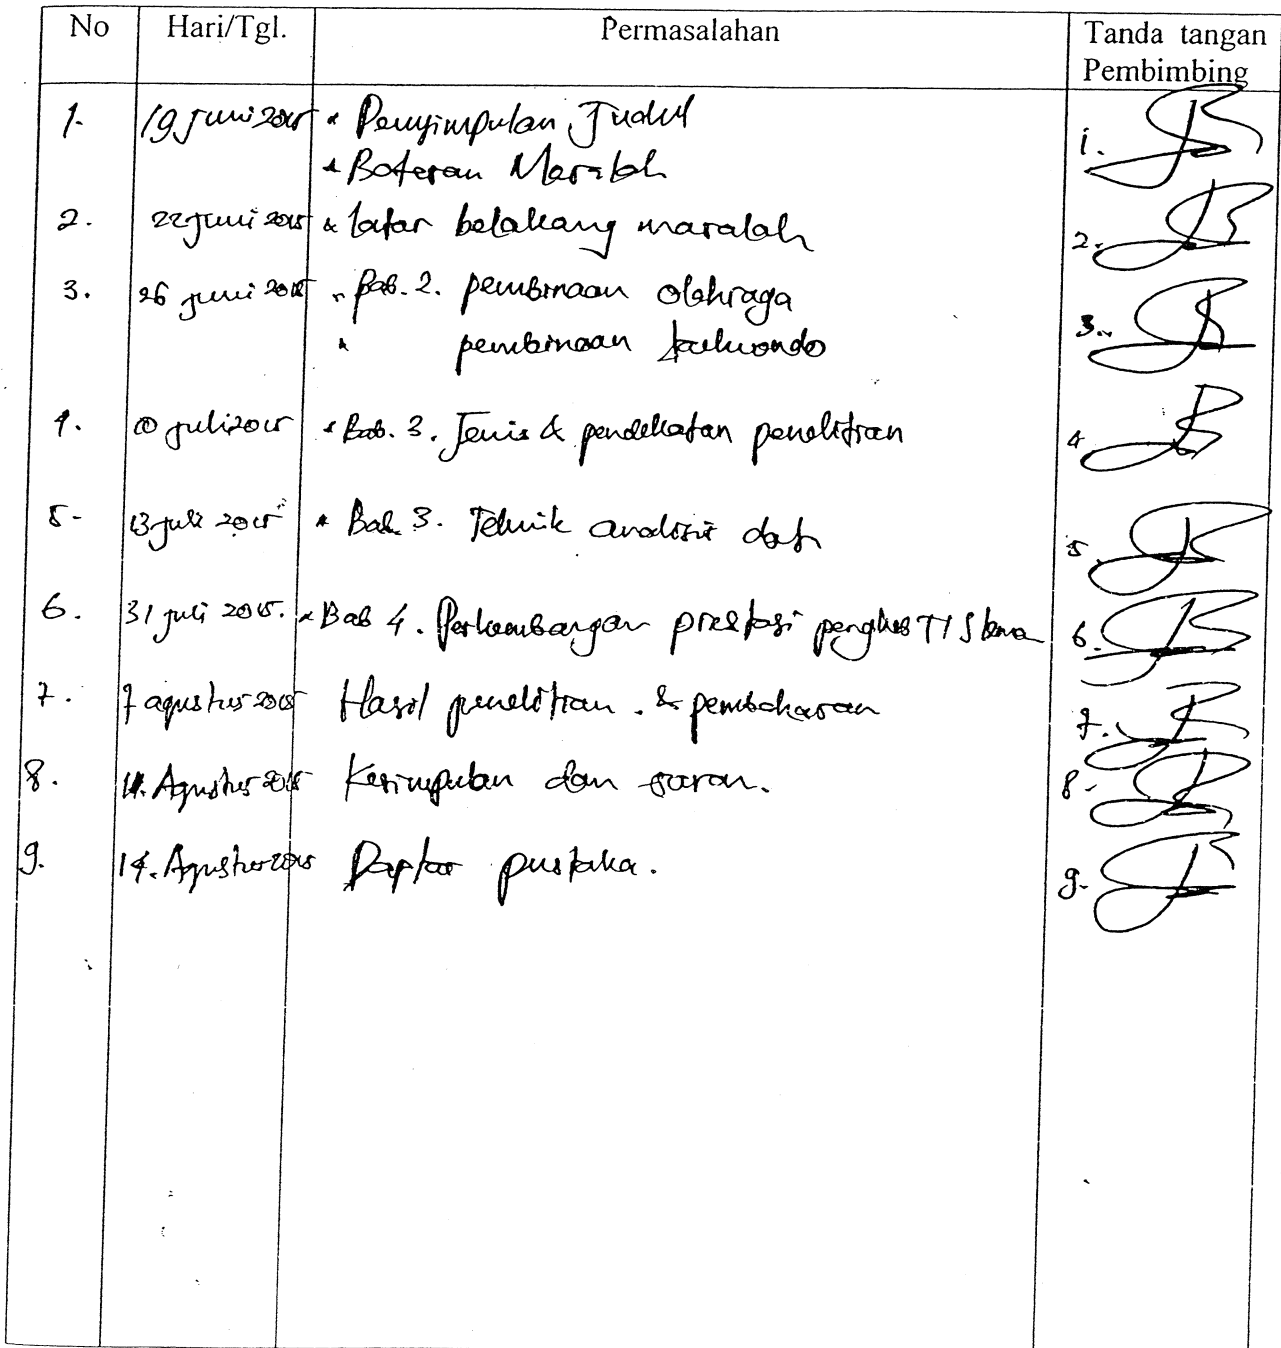 No Hari/Tgl. Permasalahan Tanda tangan
Pembimbing
1. 19 Juni 2015 * Penyimpulan Judul 1.
* Batasan Masalah
2. 22 juni 2015 * latar belakang masalah 2.
3. 26 juni 2015 * Bab. 2. pembinaan olahraga 3.
* pembinaan taekwondo
4. 10 juli 2015 * Bab. 3. Jenis & pendekatan penelitian 4
5. 13 juli 2015 * Bab 3. Teknik analisis data 5.
6. 31 juli 2015. * Bab 4. Perkembangan prestasi TI 6.
7. 7 agustus 2015 Hasil penelitian. & pembahasan 7.
8. 11. Agustus 2015 Kesimpulan dan saran. 8.
9. 14. Agustus 2015 Daptar pustaka. 9.